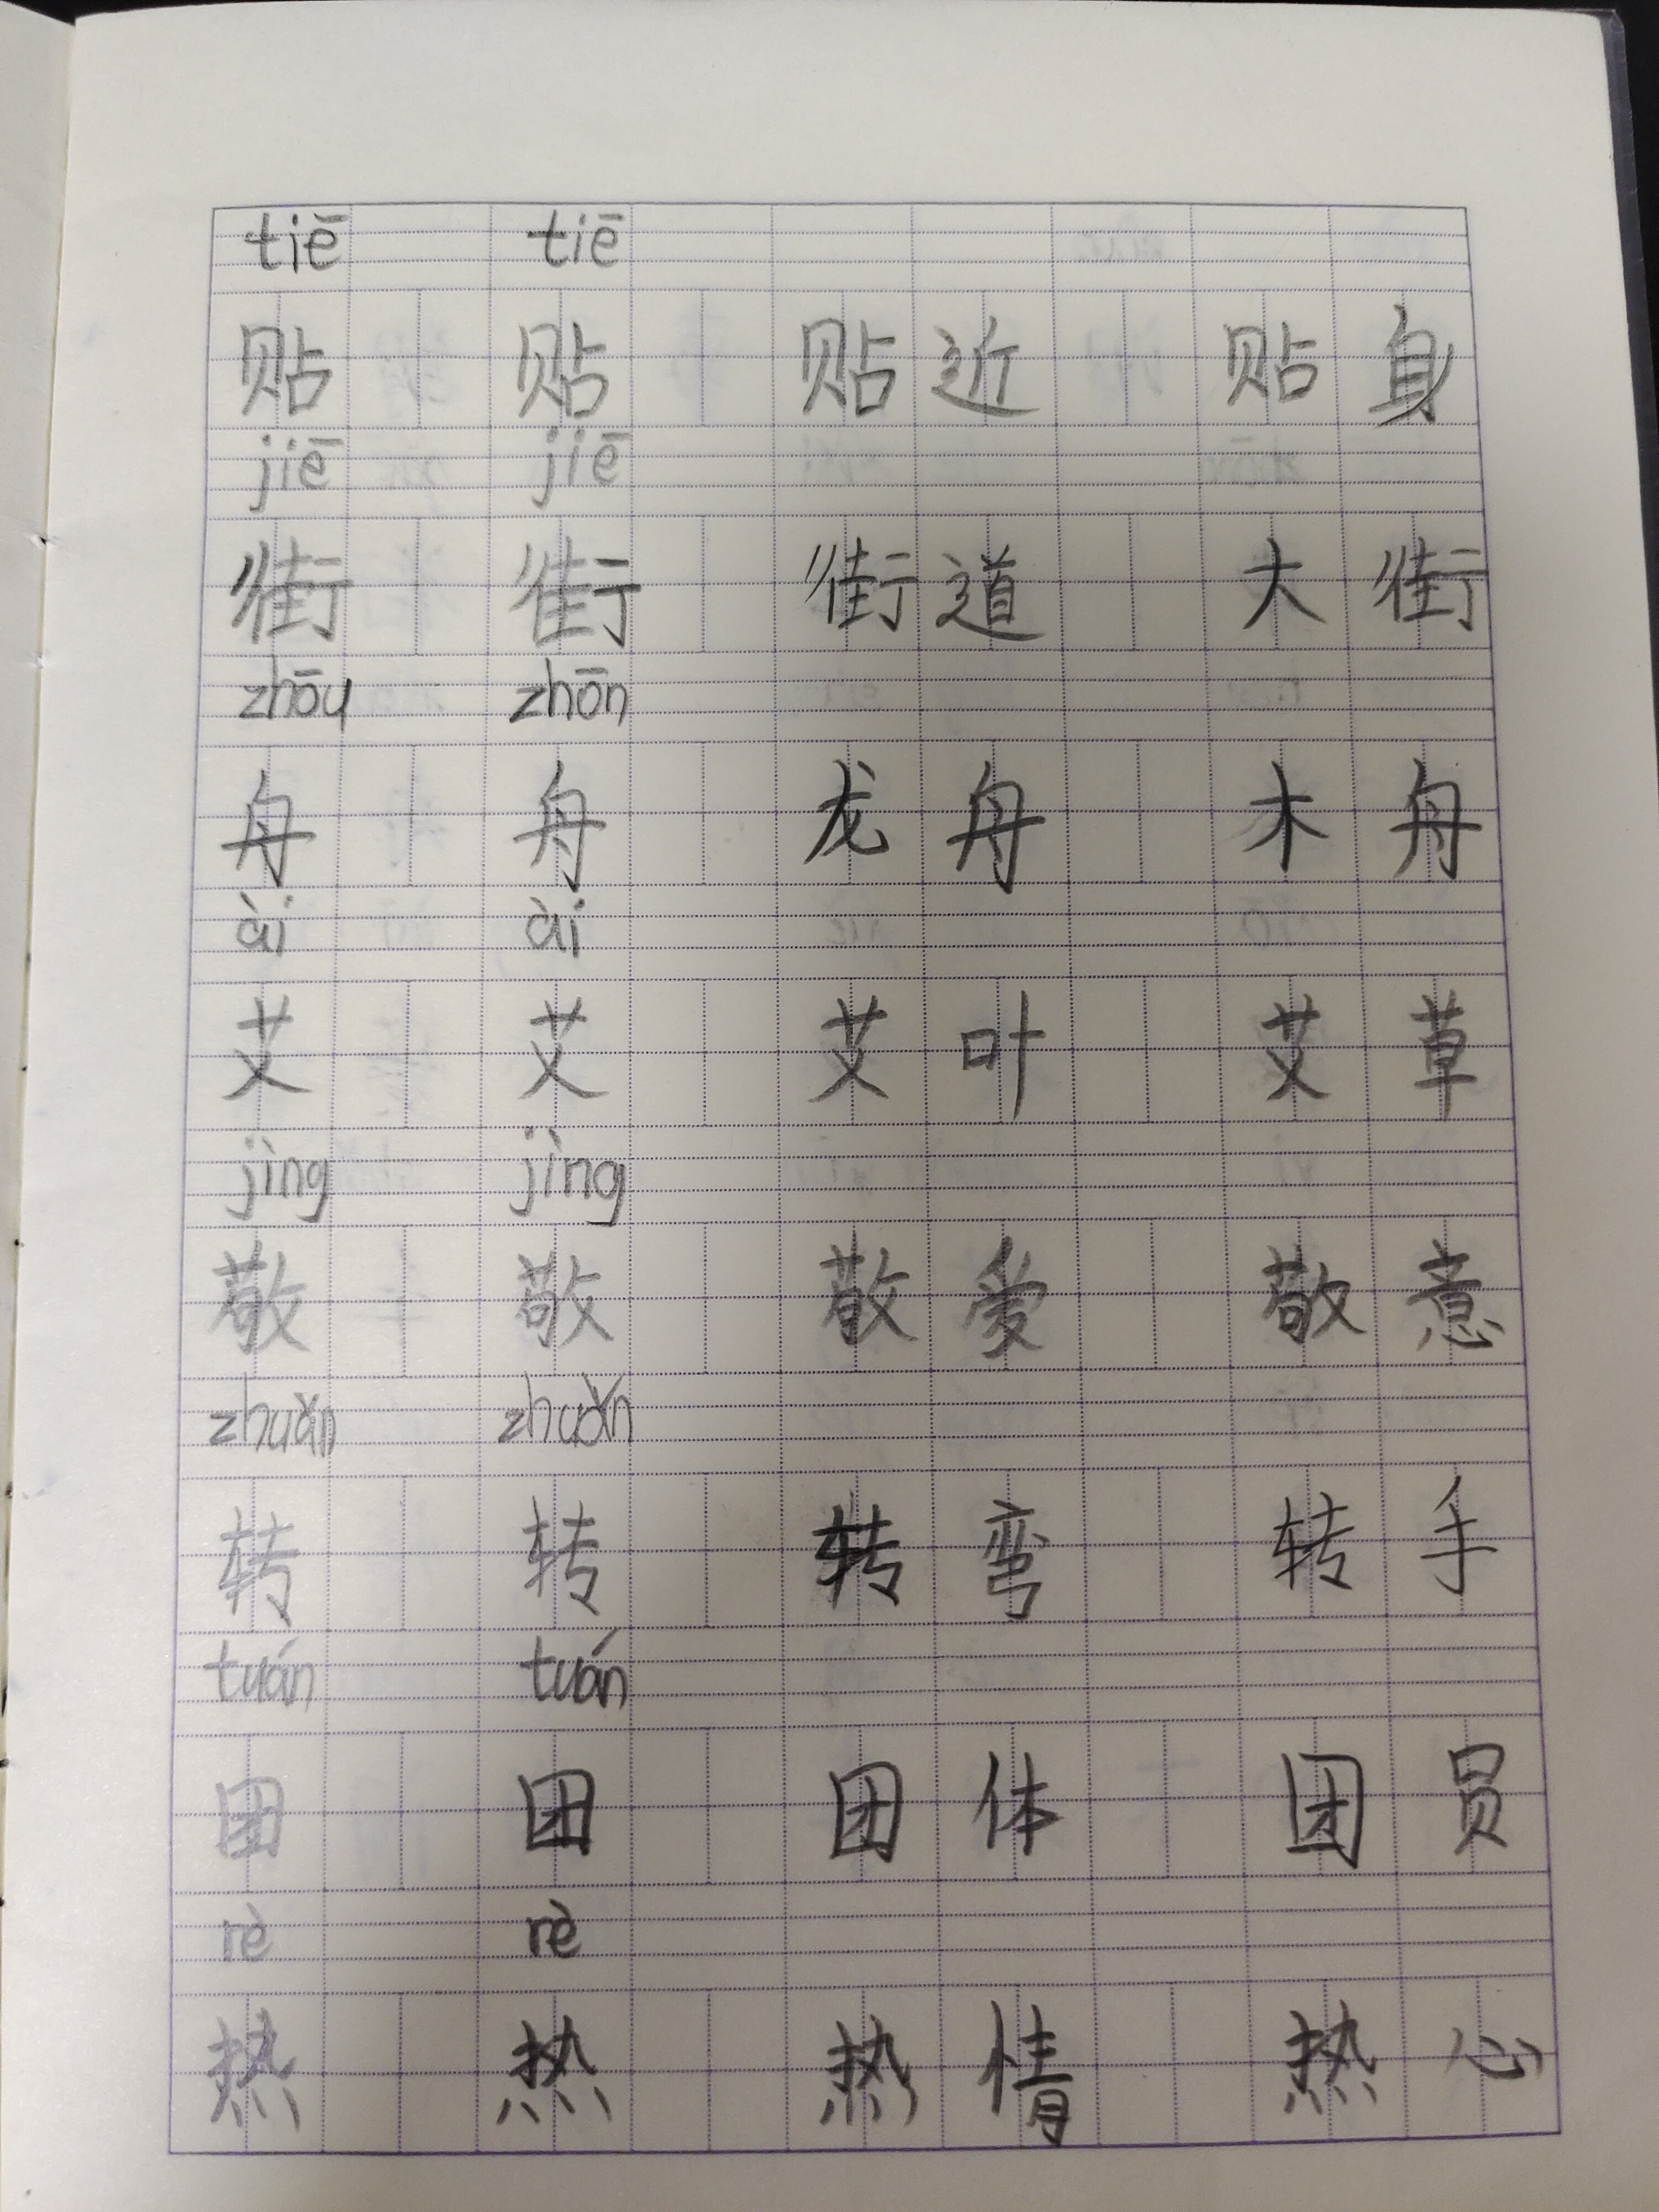 tiē tiē
贴 贴 贴近 贴身
jiē jiē
街 街 街道 大街
zhōu zhōn
舟 舟 龙舟 木舟
ài ài
艾 艾 艾叶 艾草
jìng jìng
敬 敬 敬爱 敬意
zhuǎn zhuǎn
转 转 转弯 转手
tuán tuán
团 团 团体 团员
rè rè
热 热 热情 热心